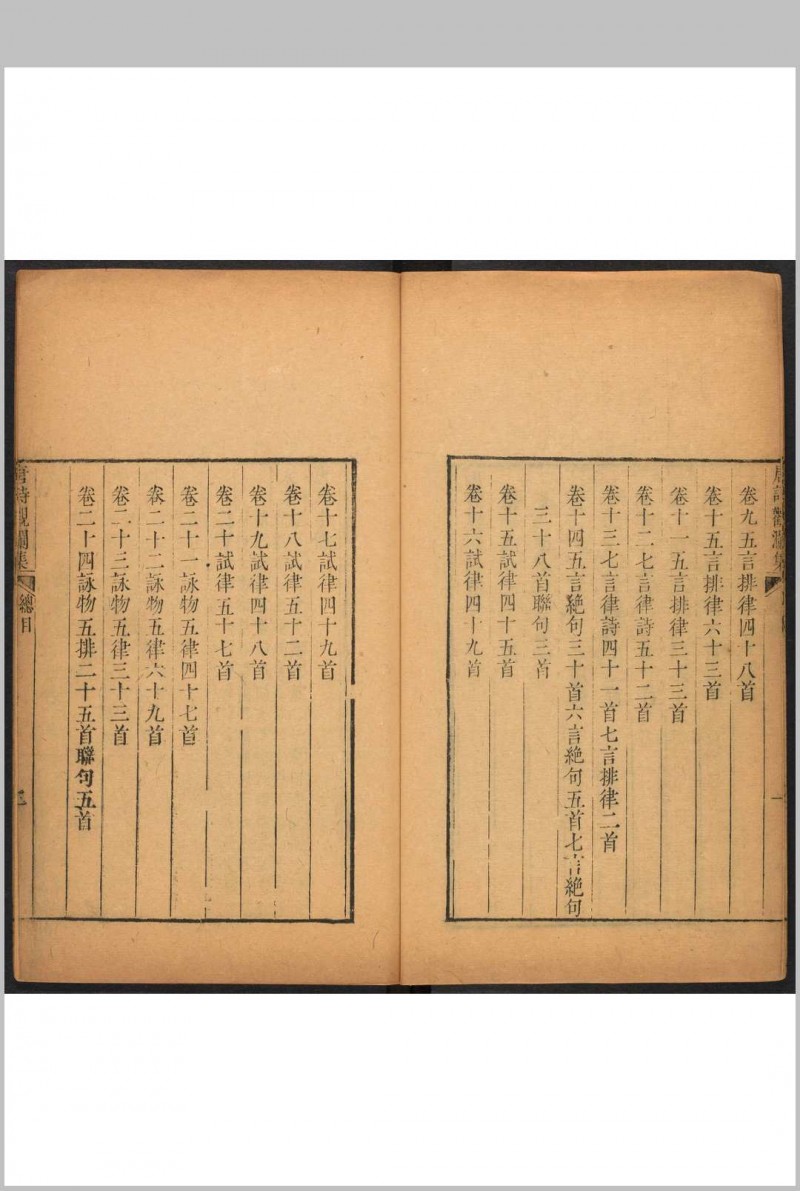 卷九五言排律四十八首
卷十五言排律六十三首
卷十一五言排律三十三首
卷十二七言律詩五十二首
卷十三七言律詩四十一首七言排律二首
卷十四五言絶句三十首六言絶句五首七言絶句
三十八首聯句三首
卷十五試律四十五首
卷十六試律四十九首
卷十七試律四十九首
卷十八試律五十二首
卷十九試律四十八首
卷二十試律五十七首
卷二十一詠物五律四十七首
卷二十二詠物五律六十九首
卷二十三詠物五律三十三首
卷二十四詠物五排二十五首聯句五首
唐詩觀瀾集
總目